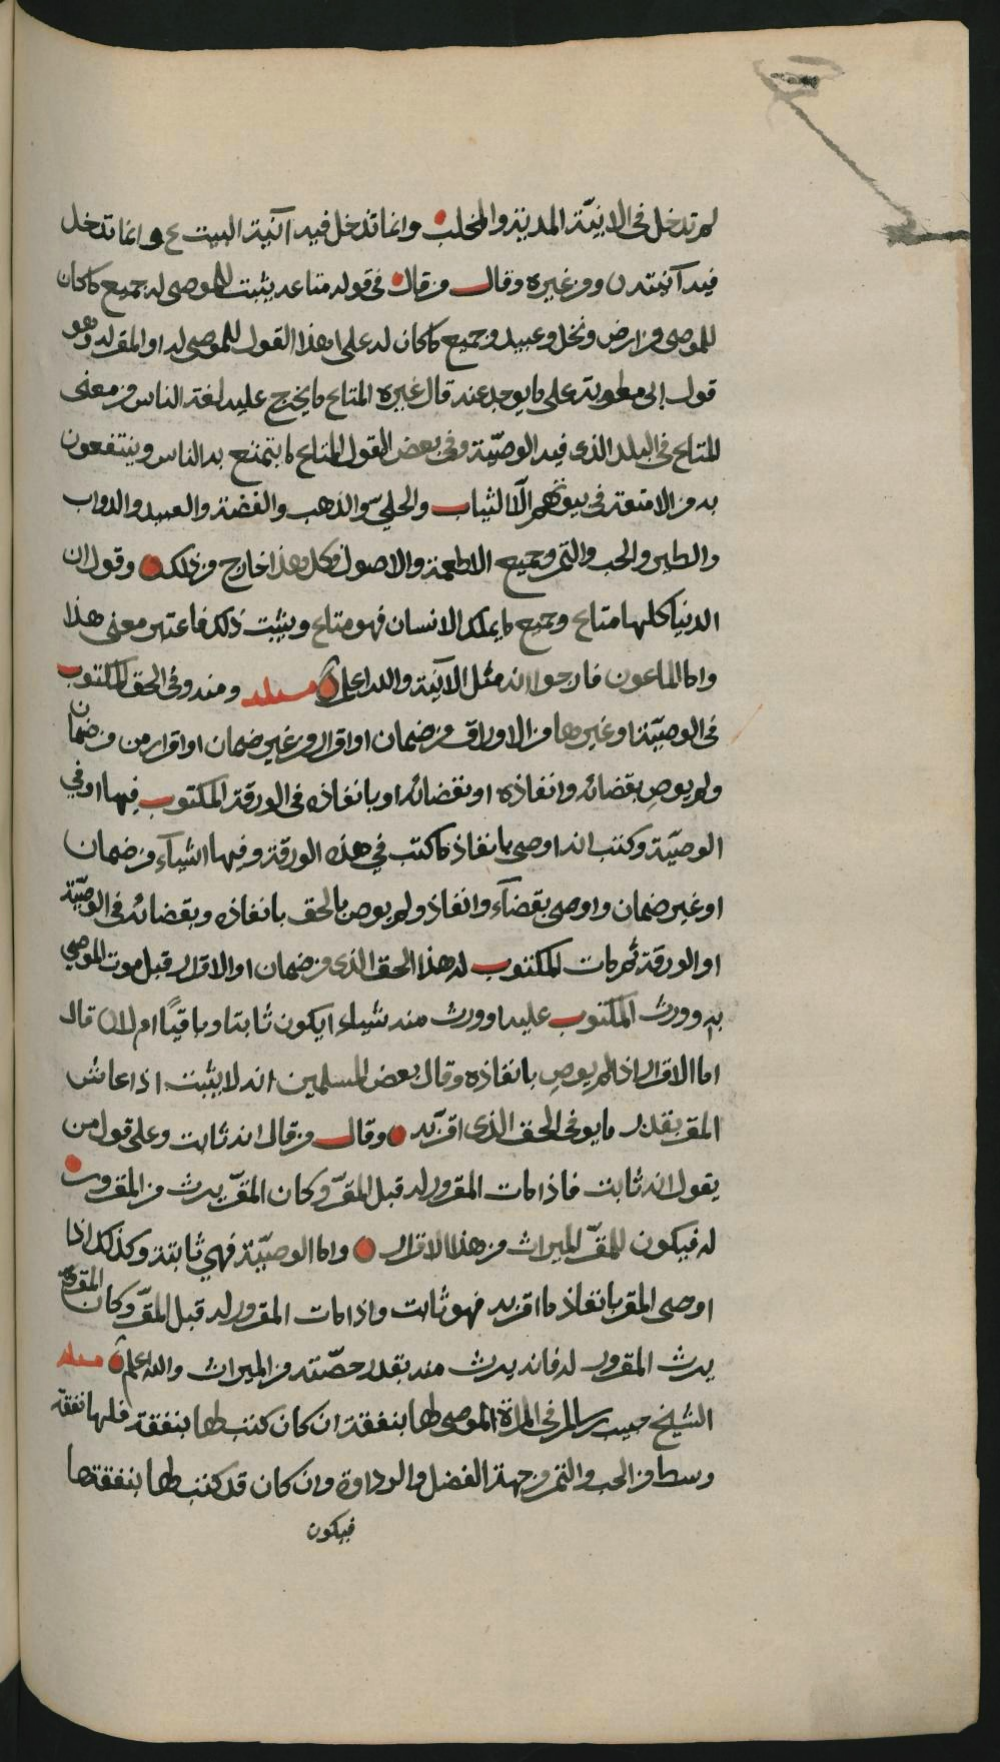 لم تدخل فى الانية المدينة والمخلب وانما تدخل فيه آنية البيت ع وانما تدخل
فيه آنيته ن ومن غيره وقال من قال فى قوله متاعه يثبت للموصى له جميع ما كان
للموصى من ارض ونخل وعبيد وجميع ما كان له على هذا القول للموصى له او المقر له وهو
قول ابى معاوية على ما يوجد عنه قال غيره المتاع ما يخرج عليه لغة الناس من معنى
المتاع فى البلد الذى فيه الوصيّة وفى بعض القول المتاع ما يتمتع به الناس وينتفعون
به من الامتعة فى بيوتهم الّا الثياب والحليّ والذهب والفضة والعبيد والدواب
والطير والحب والتمر وجميع الاطعمة والاصول وكل هذا خارج من ذلك وقول ان
الدنيا كلها متاع وجميع ما يملك الانسان فهو متاع ويثبت ذلك فاعتبر معنى هذا
واما الماعون فارجوا انه مثل الآنية والله اعلم مسئلة ومنه وفى الحق المكتوب
فى الوصيّة او غيرها من الاوراق من ضمان او اقرار من غير ضمان او اقرار من من ضمان
ولم يوصِ بقضائه وانفاذه او بقضائه او بانفاذه فى الورقة المكتوب فيها او في
الوصيّة وكتب انه اوصى بانفاذ ما كتب في هذه الورقة وفيها اشيآء من ضمان
او غير ضمان واوصى بقضآء وانفاذ ولم يوص بالحق بانفاذه وبقضائه فى الوصيّة
او الورقة ثم مات المكتوب له هذا الحق الذى من ضمان او الاقرار قبل موت الموصي
به وورث المكتوب عليه او ورث منه شيئا ايكون ثابتا وباقيًا ام لا ن قال
اما الاقرار اذا لم يوصِ بانفاذه وقال بعض المسلمين انه لا يثبت اذا عاش
المقر بقدر ما يوفى الحق الذى اقرّ به وقال من قال انه ثابت وعلى قول من
يقول انه ثابت فاذا مات المقرور له قبل المقرّ وكان المقرّ يرث من المقرور
له فيكون للمقرّ الميراث من هذا الاقرار واما الوصيّة فهي ثابتة وكذلك اذا
اوصى المقر بانفاذ ما اقر به فهو ثابت واذا مات المقرور له قبل المقرّ وكان المقر
يرث المقرور له فانه يرث منه بقدر حصّته من الميراث والله اعلم مسئلة
الشيخ حبيب بن سالم فى المرأة الموصى لها بنفقة ان كان كتب لها بنفقة فلها نفقة
وسطا من الحب والتمر من جهة الفضل والرداوة وان كان قد كتب لها بنفقتها
فيكون